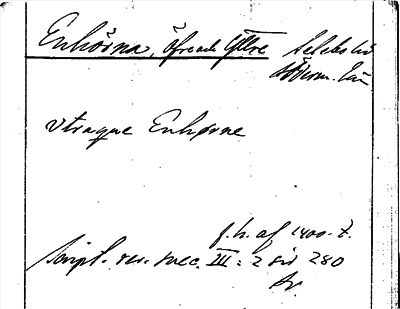 Enhörna, Öfre och Yttre Selebo hd
Söderm. län
Vtraque Enhørne
f. h. af 1400-t.
Script. rer. svec. III: 2 sid 280